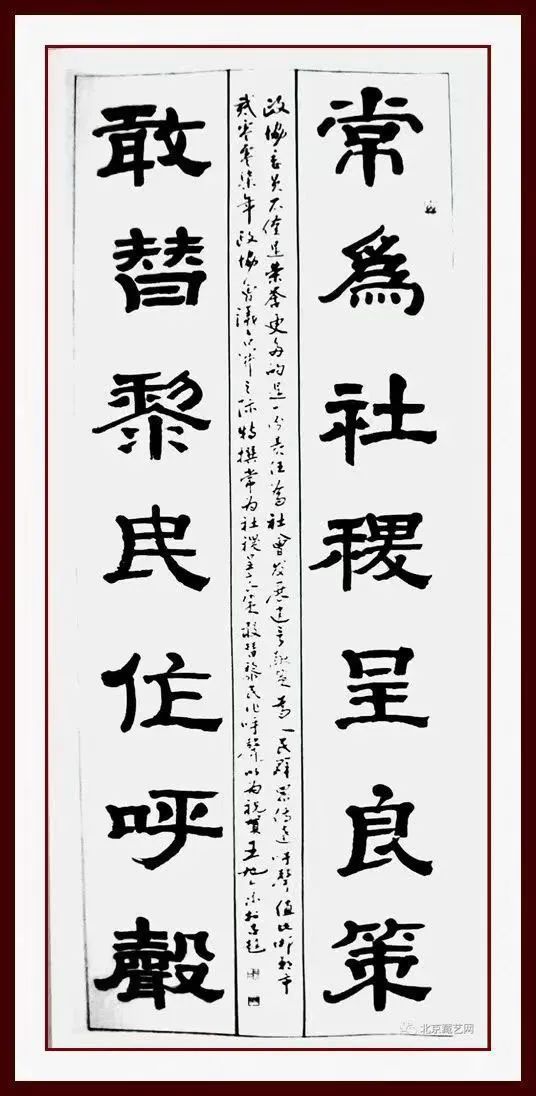 常為社稷呈良策
政协委员不僅是荣誉更多的是一份责任為社會发展建言献策為人民群眾传達呼聲值此邯郸市
贰零零柒年政协會議召开之际特撰常为社稷呈良策敢替黎民作呼聲以为祝賀王
敢替黎民作呼聲
北京藏艺网